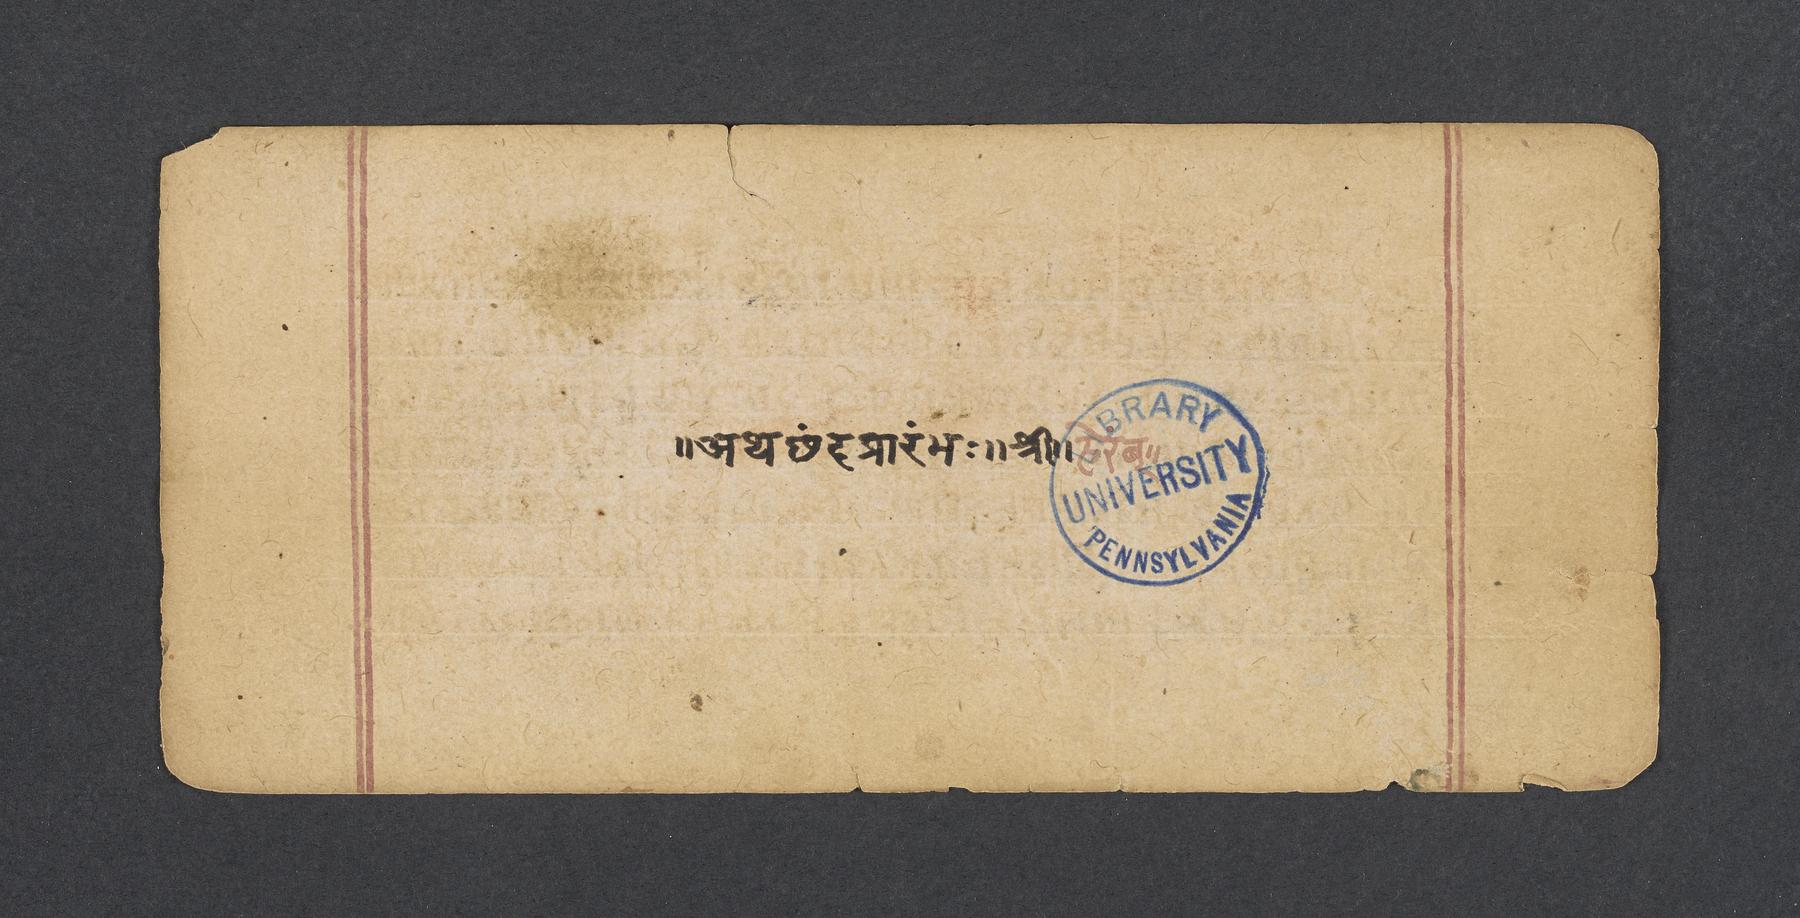 ॥अथछंदप्रारंभः॥श्री॥हेरंब॥
LIBRARY
UNIVERSITY
PENNSYLVANIA